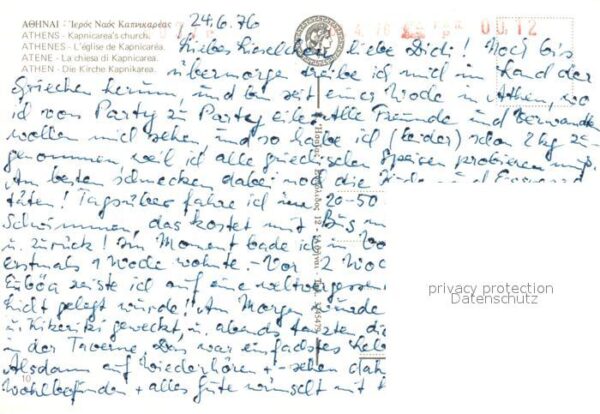 ΑΘΗΝΑΙ - Ἱερός Ναός Καπνικαρέας
ATHENS - Kapnicarea's church.
ATHENES - L'église de Kapnicaréa.
ATENE - La chiesa di Kapnicarea.
ATHEN - Die Kirche Kapnikarea.
24.6.76
4 76
00.12
Liebes Lieselchen liebe Didi! Noch bis
übermorgen treibe ich mich im Land der
Griechen herum, und bin seit einer Woche in Athen, wo
ich von Party zu Party eile. Alle Freunde und Verwandte
wollen mich sehen, und so habe ich (leider) schon 2 kg zu-
genommen weil ich alle griechischen Speisen probieren muß.
Am besten schmecken dabei noch die
täten! Tagsüber fahre ich 20-50
schwimmen, das kostet mit Bus
u. zurück! Im Moment bade ich in
erstmals 1 Woche wohnte. Vor 2 Woc
Euböa reiste ich auf eine weltvergessen
Licht gelegt wurde! Am Morgen wurde
u. Kikeriki geweckt, u. abends tanzten di
in der Taverne. Das war einfachstes Leb
Alsdann auf Wiederhören + -sehen
Wohlbefinden + alles Gute wünscht mit
10
privacy protection
Datenschutz